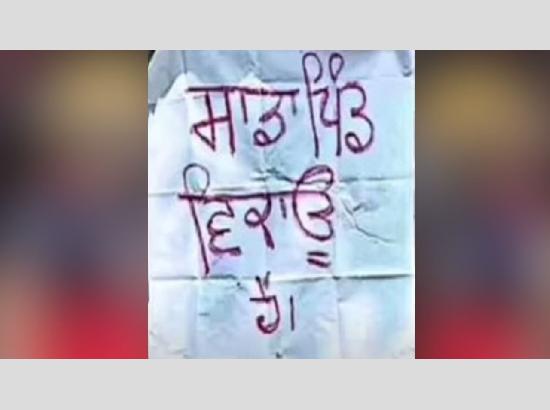 ਸਾਡਾ ਪਿੰਡ
ਵਿਕਾਊ
ਹੈ।